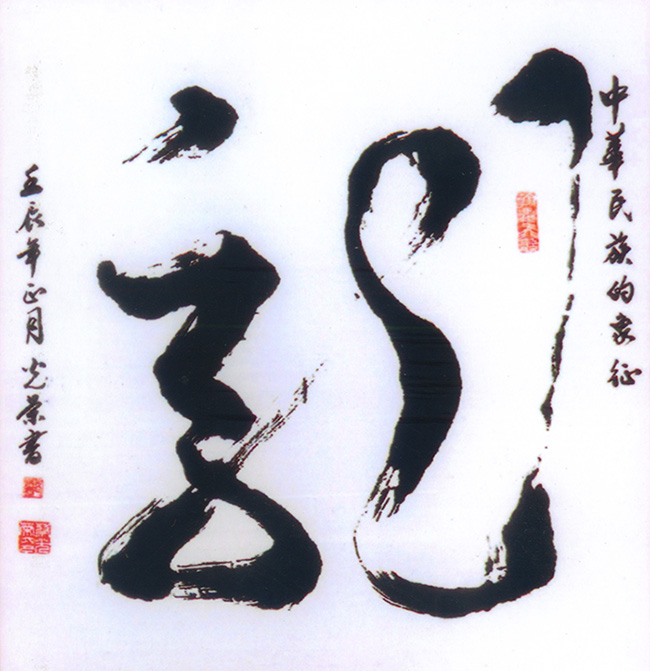 中華民族的象征
龍
壬辰年正月光荣書